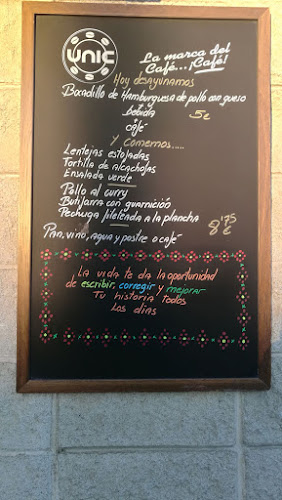 UNIC
La marca del
Café...¡Café!
Hoy desayunamos
Bocadillo de Hamburguesa de pollo con queso
bebida
café
5€
Y comemos....
Lentejas estofadas
Tortilla de alcachofas
Ensalada verde
Pollo al curry
Butifarra con guarnición
Pechuga fileteada a la plancha
Pan, vino, agua y postre o café
8'75
€
¡La vida te da la oportunidad
de escribir, corregir y mejorar
Tu historia todos
Los dias